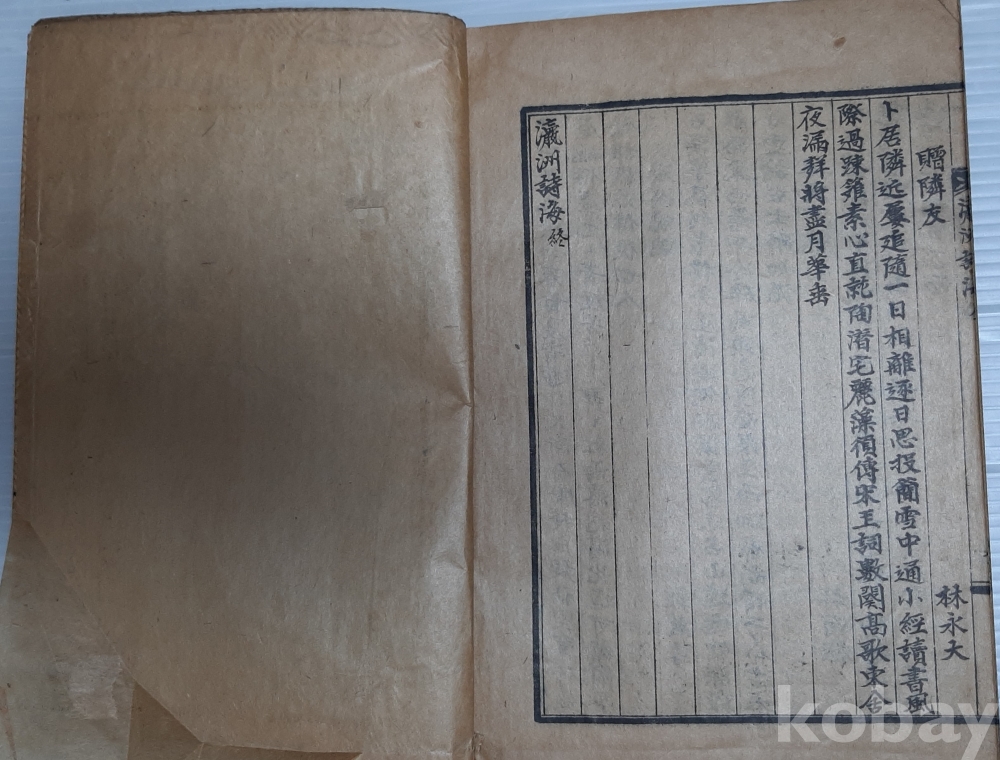 贈隣友
林永大
卜居隣近屢追隨一日相離逐日思投簡雪中通小經讀書風
際過踈籬素心直訪陶潛宅麗藻須傳宋玉詞數闋高歌東舍
夜漏籌將盡月華
瀛洲詩海終
kobay